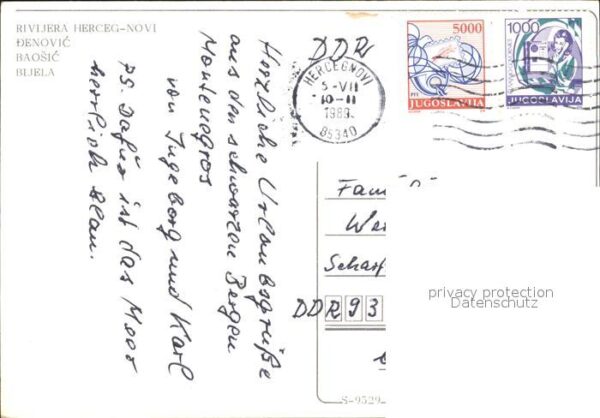 RIVIJERA HERCEG-NOVI
ĐENOVIĆ
BAOŠIĆ
BIJELA
DDR
HERCEGNOVI
5-VII
10-11
1989.
85340
5000
PTT
JUGOSLAVIJA
1000
JUGOSLAVIJA
Herzliche Urlaubsgrüße
aus den schwarzen Bergen
Montenegros
von Ingeborg und Karl
PS. Dafür ist das Meer
herrlich blau.
Fam
We
Scharf
DDR 93
S-9529-
privacy protection
Datenschutz